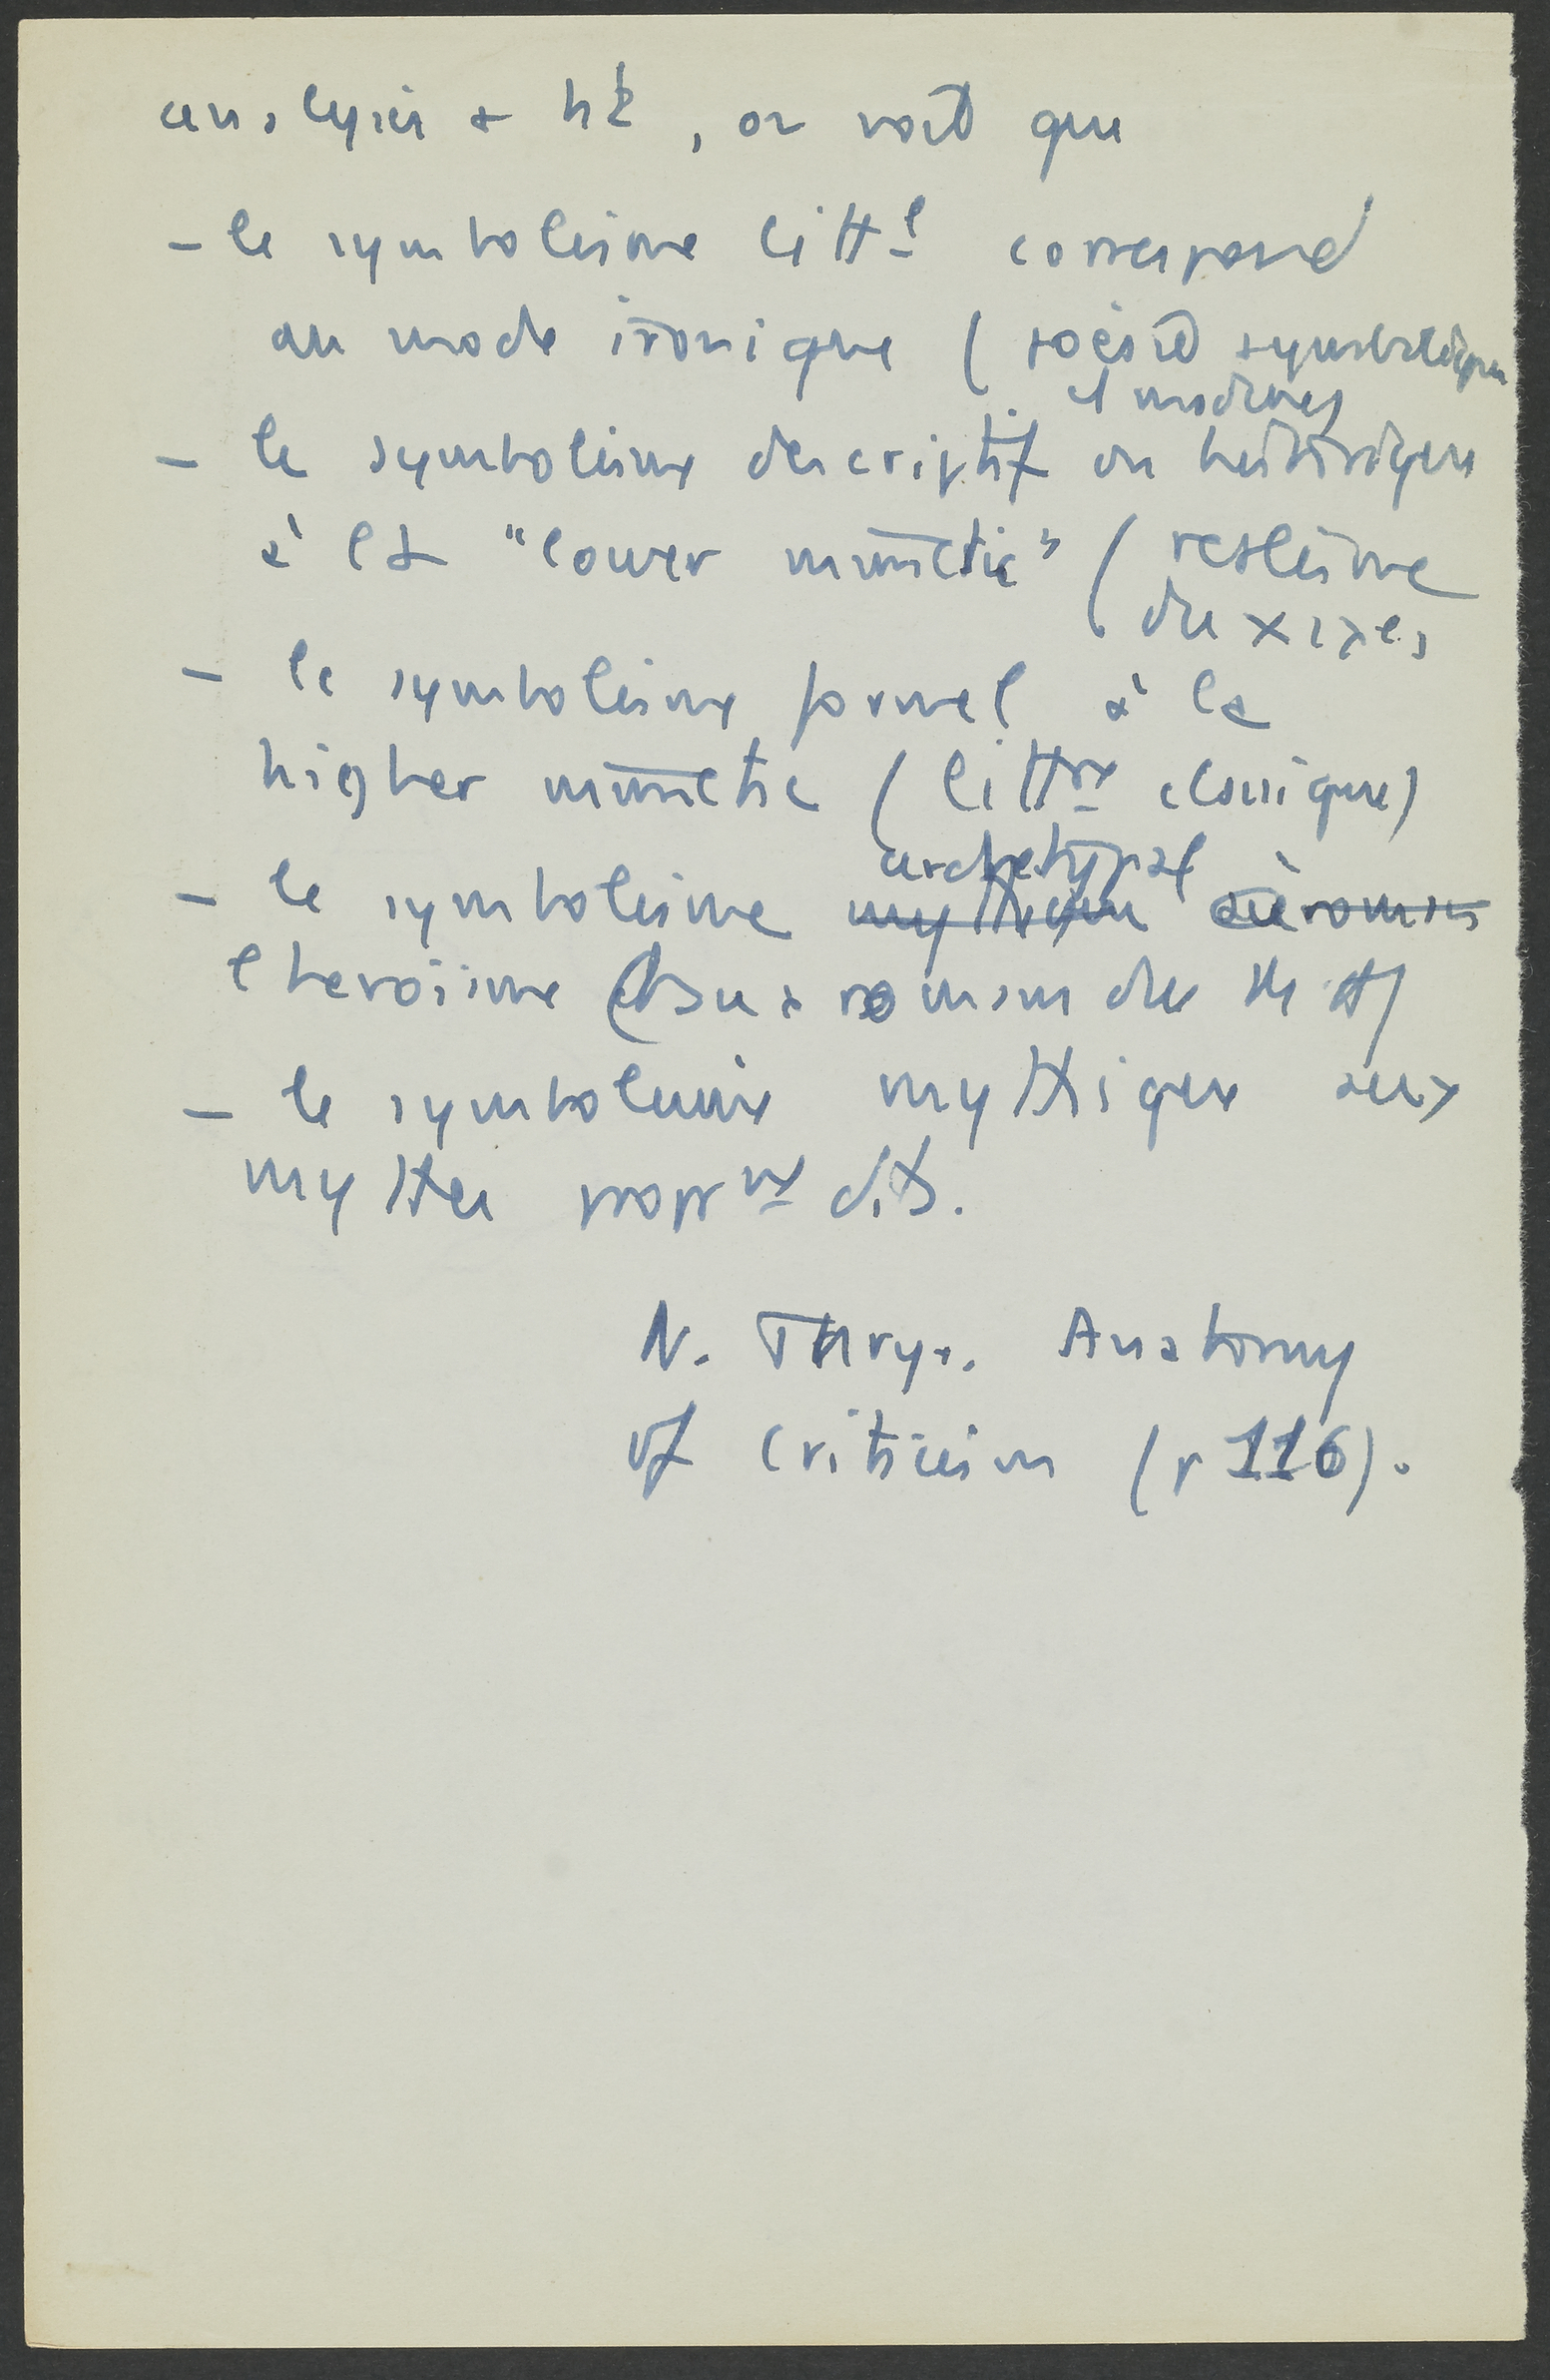 analysés + ht, on voit que
- le symbolisme littl correspond
au mode ironique ( poésie symbolique
et moderne)
- le symbolisme descriptif ou historique
à la "lower mimetic" ( réalisme
du XIXe s
- le symbolisme formel à la
higher mimetic ( littre classique)
archetypal
- le symbolisme mythique au roman
l'heroïsme du roman du
- le symbolisme mythique aux
mythes proprt dits.
N. Fhrye. Anatomy
of Criticism (p 116).